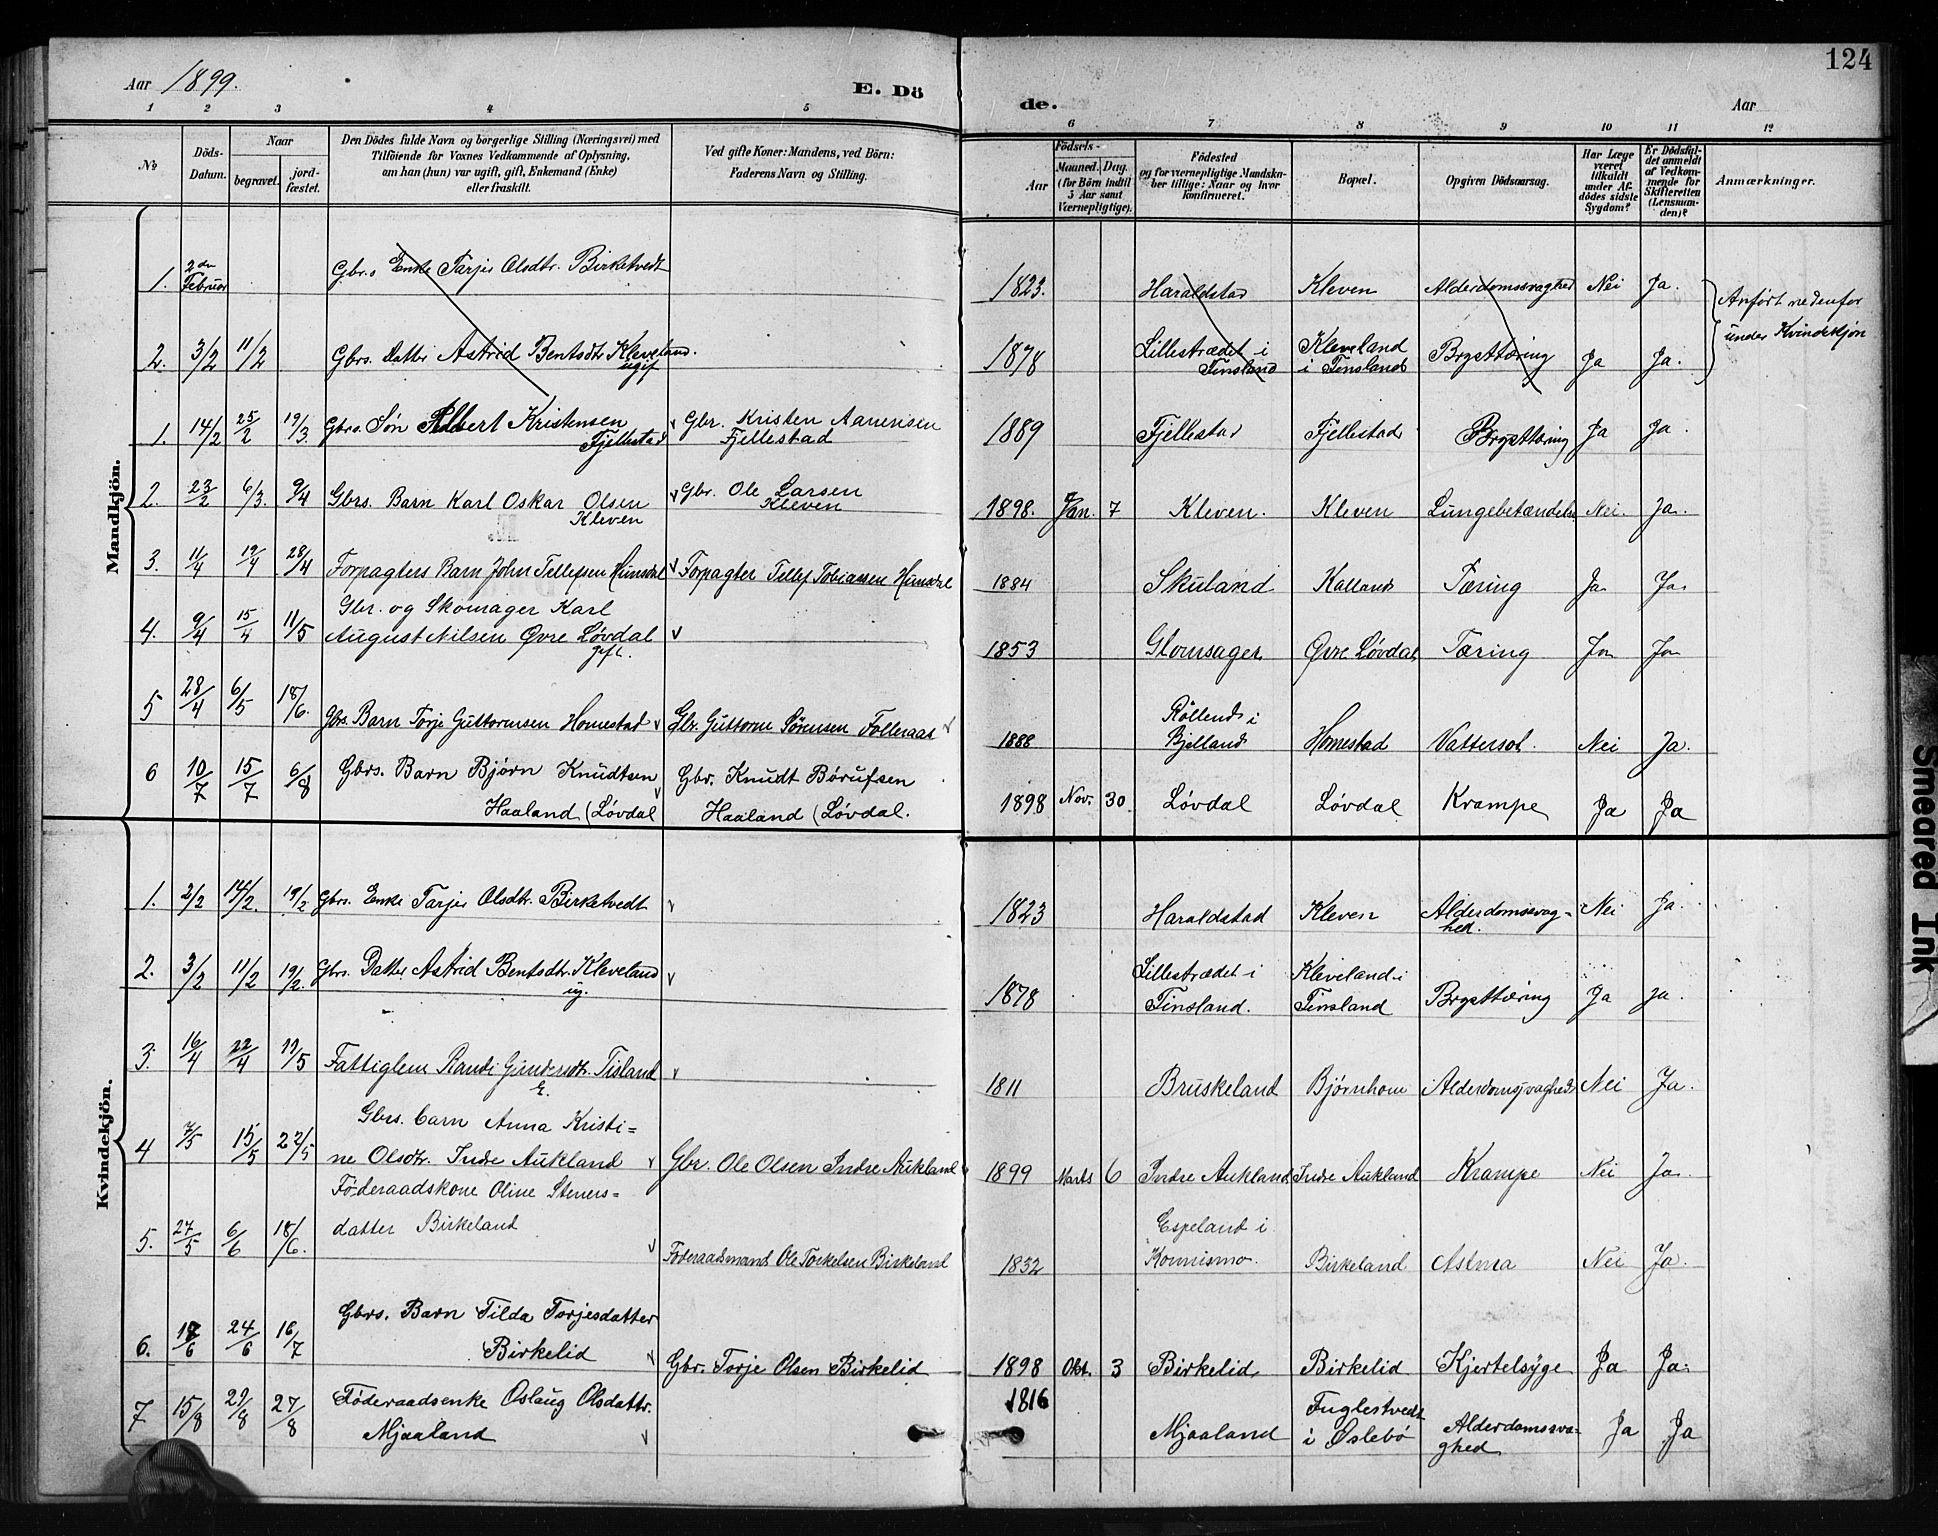 Aar 1899.
E. Dö
de.
Aar
124
1 2 3 4 5 6 7 8 9 10 11 12
No
Döds-
Datum.
Naar
begravet.
jord-
fæstet.
Den Dödes fulde Navn og borgerlige Stilling (Næringsvei) med
Tilföiende for Voxnes Vedkommende af Oplysning,
om han (hun) var ugift, gift, Enkemand (Enke)
eller fraskilt.
Ved gifte Koner: Mandens, ved Börn:
Faderens Navn og Stilling.
Födsels-
Aar
Maaned. Dag.
(for Börn indtil
5 Aar samt
Værnepligtige).
Födested
og for værnepligtige Mandska-
ber tillige: Naar og hvor
konfirmeret.
Bopæl.
Opgiven Dödsaarsag.
Har Læge
været
tilkaldt
under Af-
dödes sidste
Sygdom?
Er Dödsfal-
det anmeldt
af Vedkom-
mende for
Skifteretten
(Lensman-
den)?
Anmærkninger.
Mandkjön.
1. 2den Februar Gbrs Enke Tarjer Olsdtr. Birketvedt 1823. Haraldstad Kleven Alderdomssvaghed Nei Ja.
Anført nedenfor
under Kvindekjøn
2. 3/2 11/2 Gbrs. Datter Astrid Bentsdtr Kleveland. ugif 1878 Lillestrædet i Finsland Kleveland i Finsland Brysttæring Ja Ja.
1. 14/2 25/2 19/3 Gbrs. Søn Albert Kristensen Fjellestad Gbr. Kristen Aanensen Fjellestad 1889 Fjellestad Fjellestad Brysttæring Ja Ja.
2. 23/2 6/3. 9/4 Gbrs. Barn Karl Oskar Olsen Kleven Gbr. Ole Larsen Kleven 1898. Jan. 7 Kleven. Kleven Lungebetændelse Nei. Ja.
3. 11/4 19/4 28/4 Forpagters Barn John Tellefsen Hunsdal Forpagter Tellef Tobiassen Hunsdal 1884 Skuland Kalland Tæring Ja Ja
4. 9/4 15/4 11/5 Gbr. og Skomager Karl
August Nilsen Øvre Løvdal gift. 1853 Glomsager Øvre Løvdal Tæring Ja Ja
5 28/4 6/5 18/6. Gbrs. Barn Torje Guttormsen Homestad Gbr. Guttorm Sørensen Folleraas 1888 Røllend i Bjelland Homestad Vattersot. Nei Ja.
6 10/7 15/7 6/8 Gbrs. Barn Bjørn Knudtsen
Haaland (Løvdal Gbr. Knudt Børufsen
Haaland (Løvdal. 1898 Nov. 30 Løvdal Løvdal Krampe Ja Ja
Kvindekjön.
1. 2/2 14/2. 19/2 Gbrs. Enke Tarjer Olsdtr. Birketvedt 1823 Haraldstad Kleven Alderdomssvag=
hed. Nei Ja.
2. 3/2 11/2 19/2. Gbrs. Datter Astrid Bentsdtr. Kleveland ug. 1878 Lillestrædet i
Finsland. Kleveland i
Finsland Brysttæring Ja Ja.
3. 16/4 22/4 19/5 Fattiglem Randi Gundersdtr. Tisland E. 1811 Bruskeland Bjørnhom Alderdomssvaghed Nei Ja.
4 7/5 15/5 22/5 Gbrs. barn Anna Kristi=
ne Olsdtr. Indre Aukland Gbr. Ole Olsen Indre Aukland 1899 Marts 6 Indre Aukland Indre Aukland Krampe Nei Ja.
5. 27/5 6/6 18/6. Føderaadskone Oline Steners=
datter Birkeland Føderaadsmand Ole Torkelsen Birkeland 1832 Espeland i
Konnismo. Birkeland Astma Nei Ja.
6. 18/6 24/6 16/7 Gbrs. Barn Tilda Torjesdatter
Birkelid Gbr. Torje Olsen Birkelid 1898 Okt. 3 Birkelid Birkelid Kjertelsyge Ja Ja.
7 15/8 21/8 27/8 Føderaadsenke Oslaug Olsdattr.
Mjaaland 1816 Mjaaland Fuglestvedt
i Øslebø Alderdomssva=
ghed Ja Ja
Smeared Ink